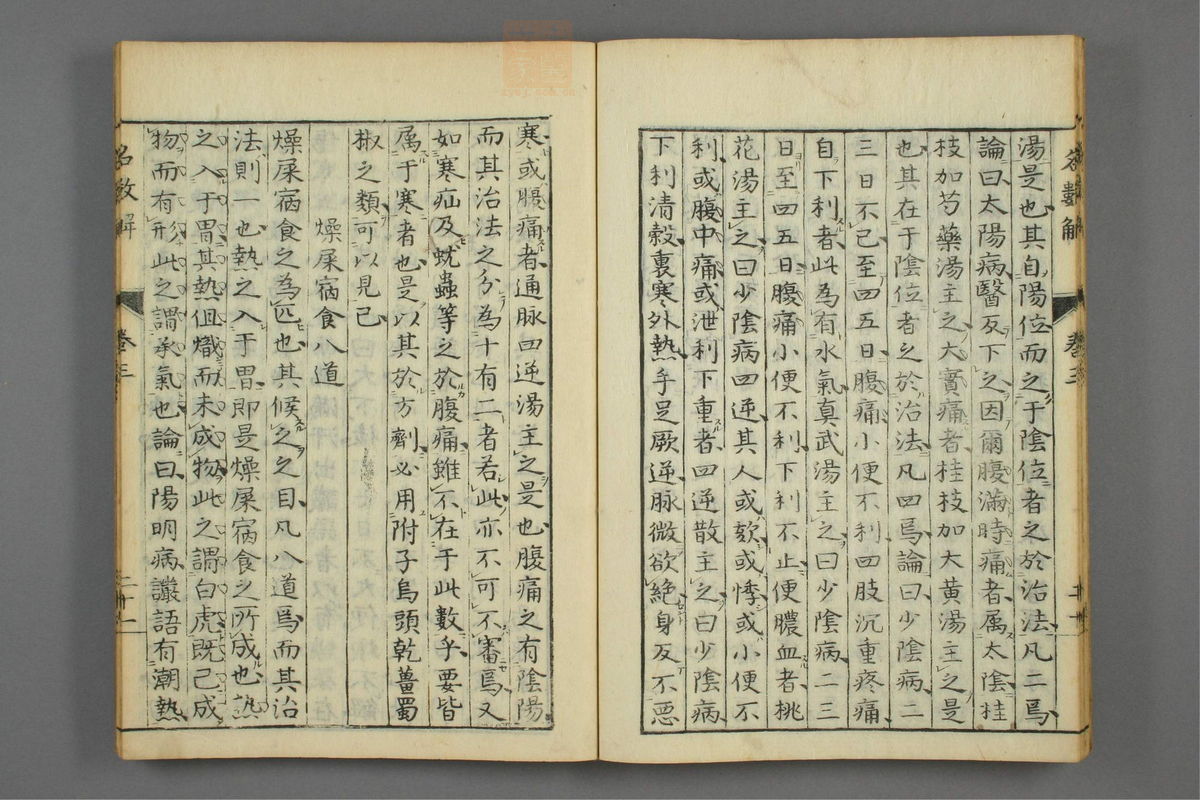 湯是也其自陽位而之于陰位者之於治法凡二焉
論曰太陽病醫反下之因爾腹滿時痛者属太陰桂
枝加芍藥湯主之大實痛者桂枝加大黃湯主之是
也其在于陰位者之於治法凡四焉論曰少陰病二
三日不已至四五日腹痛小便不利四肢沉重疼痛
自下利者此為有水氣真武湯主之曰少陰病二三
日至四五日腹痛小便不利下利不止便膿血者桃
花湯主之曰少陰病四逆其人或欬或悸或小便不
利或腹中痛或泄利下重者四逆散主之曰少陰病
下利清穀裏寒外熱手足厥逆脉微欲絕身反不惡
寒或腹痛者通脉四逆湯主之是也腹痛之有陰陽
而其治法之分為十有二者若此亦不可不審焉又
如寒疝及蚘蟲等之於腹痛雖不在于此數乎要皆
属于寒者也是以其於方劑必用附子烏頭乾薑蜀
椒之類可以見已
燥屎宿食八道
燥屎宿食之為匹也其候之之目凡八道焉而其治
法則一也熱之入于胃即是燥屎宿食之所成也熱
之入于胃其熱但熾而未成物此之謂白虎既已成
物而有形此之謂承氣也論曰陽明病讝語有潮熱
名數解
卷三
名數解
卷三